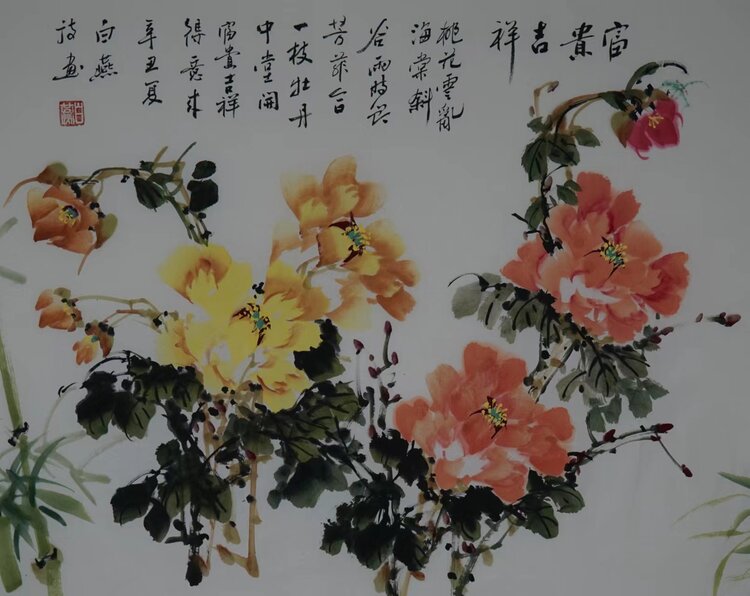 富貴吉祥
桃花零亂
海棠斜
谷雨時節
芳菲合
一枝牡丹
中堂開
富貴吉祥
得意來
辛丑夏
白燕
詩畫